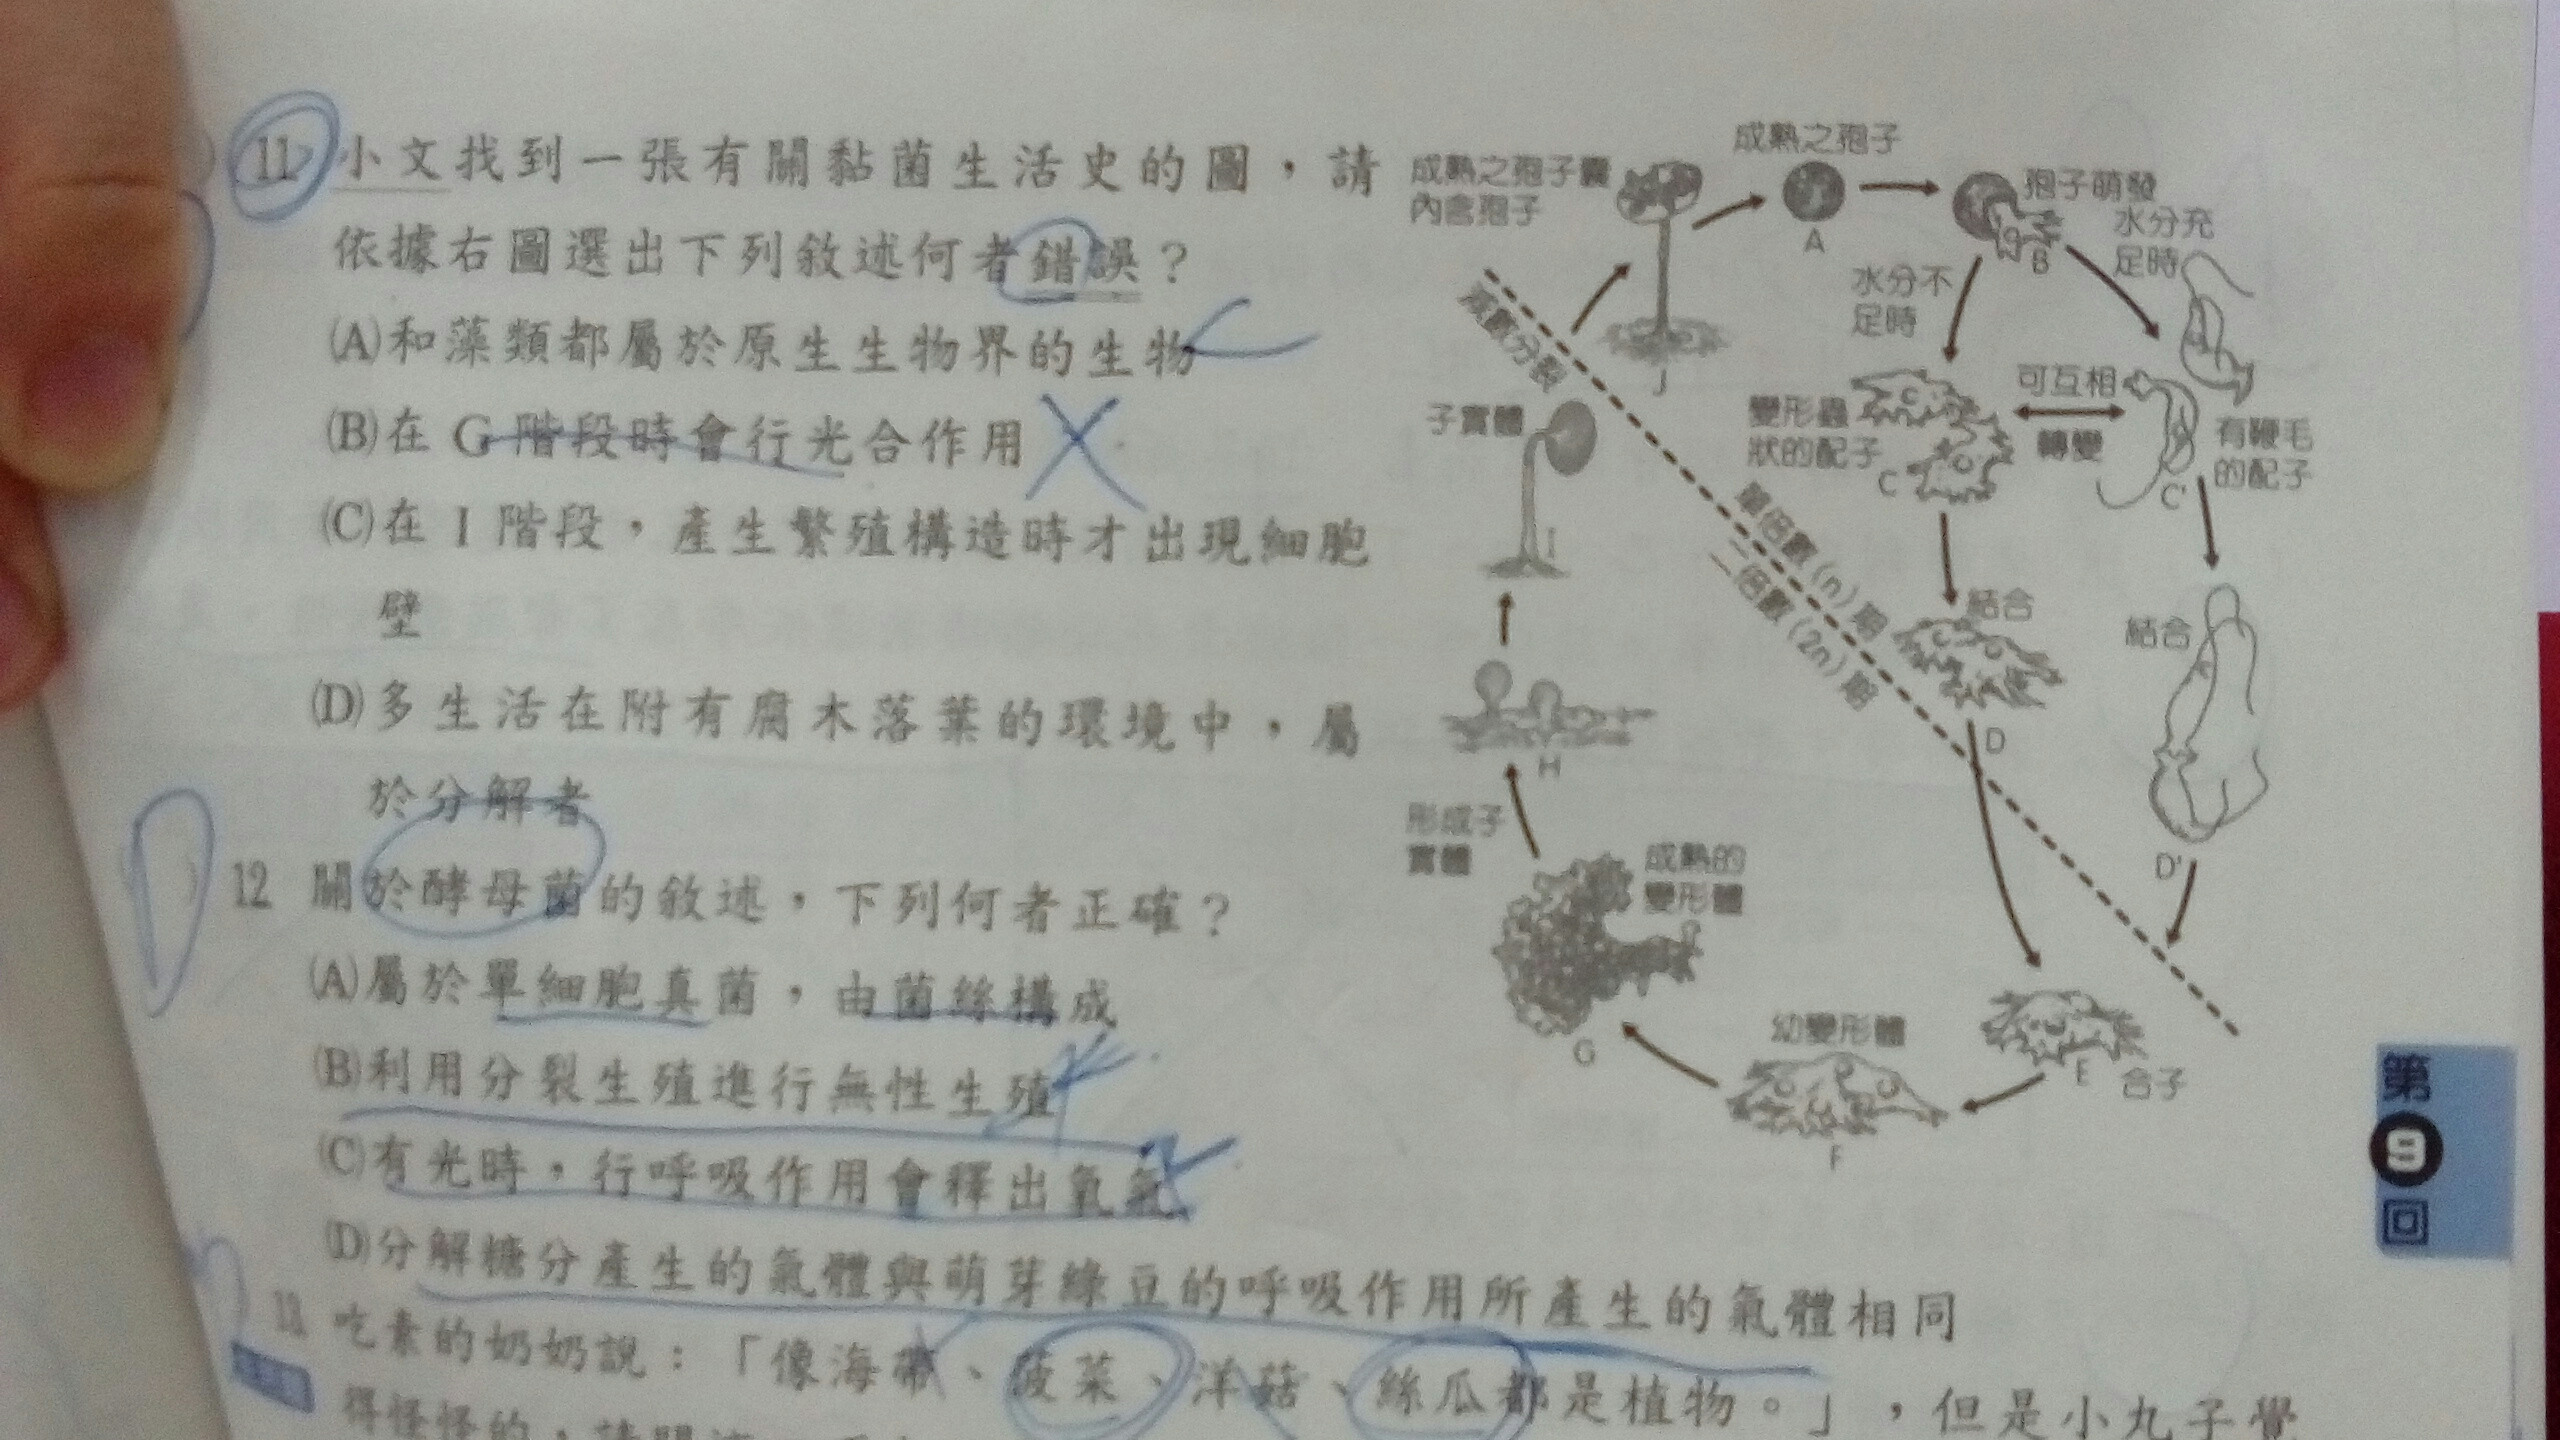 11 小文找到一張有關黏菌生活史的圖，請
依據右圖選出下列敘述何者錯誤？
(A)和藻類都屬於原生生物界的生物
(B)在 G 階段時會行光合作用
(C)在 I 階段，產生繁殖構造時才出現細胞
壁
(D)多生活在附有腐木落葉的環境中，屬
於分解者
成熟之孢子囊
內含孢子
J
成熟之孢子
A
孢子萌發
B
水分充
足時
水分不
足時
變形蟲
狀的配子
C
可互相
轉變
有鞭毛
的配子
C'
減數分裂
單倍數(n)期
二倍數(2n)期
子實體
I
結合
D
結合
D'
H
形成子
實體
成熟的
變形體
G
幼變形體
F
E 合子
12 關於酵母菌的敘述，下列何者正確？
(A)屬於單細胞真菌，由菌絲構成
(B)利用分裂生殖進行無性生殖
(C)有光時，行呼吸作用會釋出氧氣
(D)分解糖分產生的氣體與萌芽綠豆的呼吸作用所產生的氣體相同
13 吃素的奶奶說：「像海帶、菠菜、洋菇、絲瓜都是植物。」，但是小丸子覺
得怪怪的，請
第
9
回